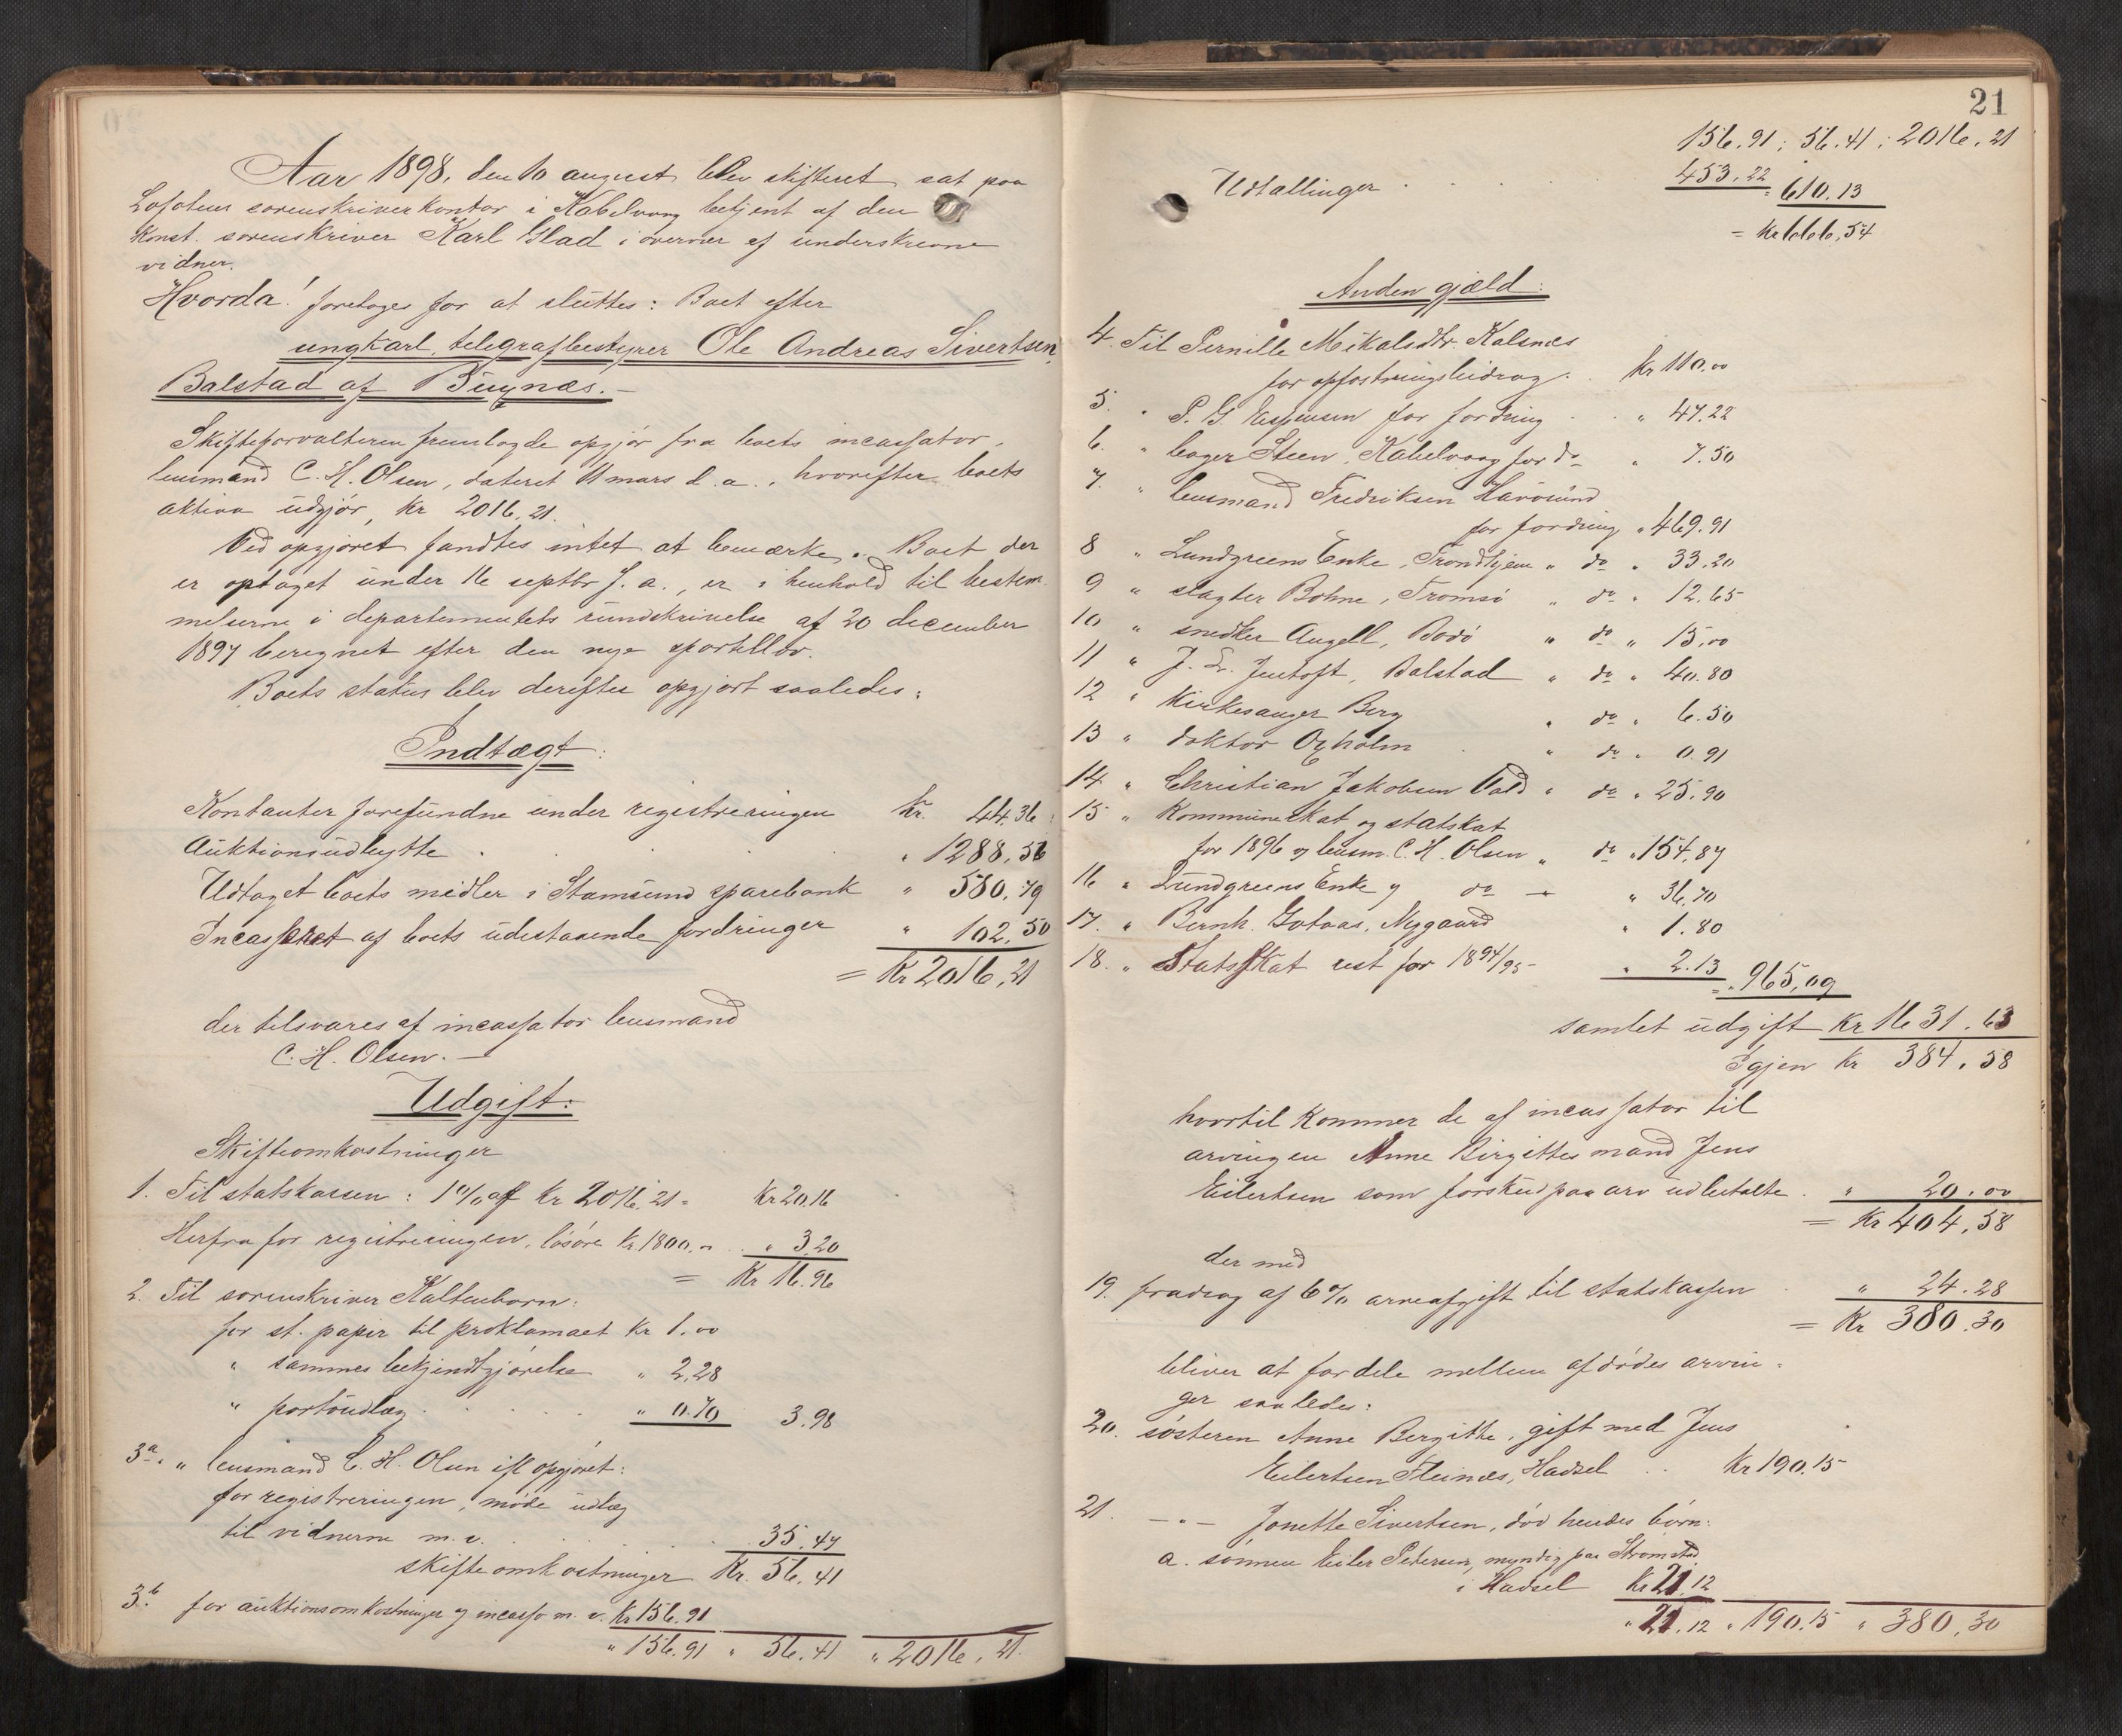 Aar 1898, den 10 august blev skifteret sat paa
Lofotens sorenskriverkontor i Kabelvaag betjent af den
konst. sorenskriver Karl Glad i overvær af underskrevne
vidner.
Hvorda! foretoges for at sluttes: Boet efter
ungkarl, telegrafbestyrer Ole Andreas Sivertsen,
Balstad af Buxnæs.-
Skifteforvalteren fremlagde opgjør fra boets incassator,
lensmand C. H. Olsen, dateret 11 mars d. a., hvorefter boets
aktiva udgjør, kr 2016,21.
Ved opgjøret fandtes intet at bemærke. Boet der
er optaget under 16 septbr f. a., er i henhold til bestem-
melserne i departementets rundskrivelse af 20 december
1897 beregnet efter den nye sportellov.
Boets status blev derefter opgjort saaledes:
Indtægt:
Kontanter forefundne under registreringen Kr. 44,36
Auktionsudbytte . . . " 1288,56
Udtaget boets midler i Stamsund sparebank " 580,79
Incasseret af boets udestaaende fordringer " 102,50
= Kr 2016,21
der tilsvares af incassator lensmand
C. H. Olsen.-
Udgift:
Skifteomkostninger
1. Til statskassen: 1% af Kr 2016,21 = Kr 20,16
Herfra for registreringen, løsøre Kr. 1800,00 " 3,20
= Kr 16.96
2. Til sorenskriver Kaltenborn:
for st. papir til proklamaet Kr 1.00
" sammes bekjendtgjørelse " 2,28
" portoudlæg . . . " 0.70 3.98
3a. " lensmand C. H. Olsen ifl opgjøret:
for registreringen, møde udlæg
til vidnerne m. v. . . . 35,47
skifteomkostninger Kr. 56,41
3b. for auktionsomkostninger og incasso m. v. Kr 156.91
" 156.91 " 56.41 " 2016,21.
21
156.91; 56.41; 2016,21
Udtallinger . . . 453,22 = 610.13
= Kr 666,54
Anden gjæld:
4. Til Pernille Mikalsdtr. Kalsnæs
for opfostringsbidrag. Kr 110.00
5. " P. G. Espensen for fordring . . " 47.22
6. " bager Steen, Kabelvaag for do " 7.50
7. " lensmand Fredriksen Havøsund
for fordring " 469.91
8 " Lundgreens Enke, Trondhjem " do " 33.20
9 " slagter Bohne, Tromsø " do " 12.65
10 " snedker Angell, Bodø " do " 15,00
11 " J. L. Jentoft, Balstad " do " 40.80
12 " Kirkesanger Berg " do " 6.50
13 " doktor Oxholm . " do " 0.91
14 " Christian Jakobsen Vold " do " 25.90
15 " Kommuneskat og statskat
for 1896 og lensm. C. H. Olsen " do " 154,87
16 " Lundgreens Enke og do " 36,70
17. " Bernh. Gotaas, Nygaard " 1.80
18. " Statsskat rest for 1894/95 " 2.13 = " 965,09
samlet udgift Kr 1631.63
Igjen Kr 384,58
hvortil kommer de af incassator til
arvingen Anne Birgittes mand Jens
Eilertsen som forskud paa arv udbetalte . " 20.00
= Kr 404,58
der med
19. fradrag af 6% arveafgift til statskassen " 24.28
= Kr 380.30
bliver at fordele mellem afdødes arvin-
ger saaledes:
20. søsteren Anne Bergitte, gift med Jens
Eilertsen Fleinæs, Hadsel . . Kr 190.15
21. -"- Jonette Sivertsen, død hendes børn:
a. sønnen Eiler Petersen, myndig paa Strømstad
i Hadsel Kr 21,12
" 21,12 " 190.15 " 380,30